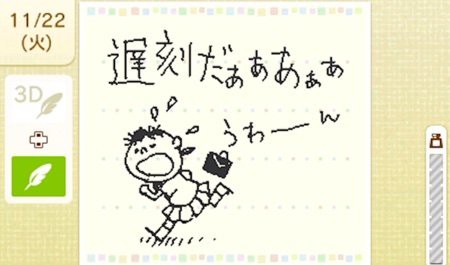 11/22
(火)
3D
遅刻だぁぁあぁぁ
うわーーん